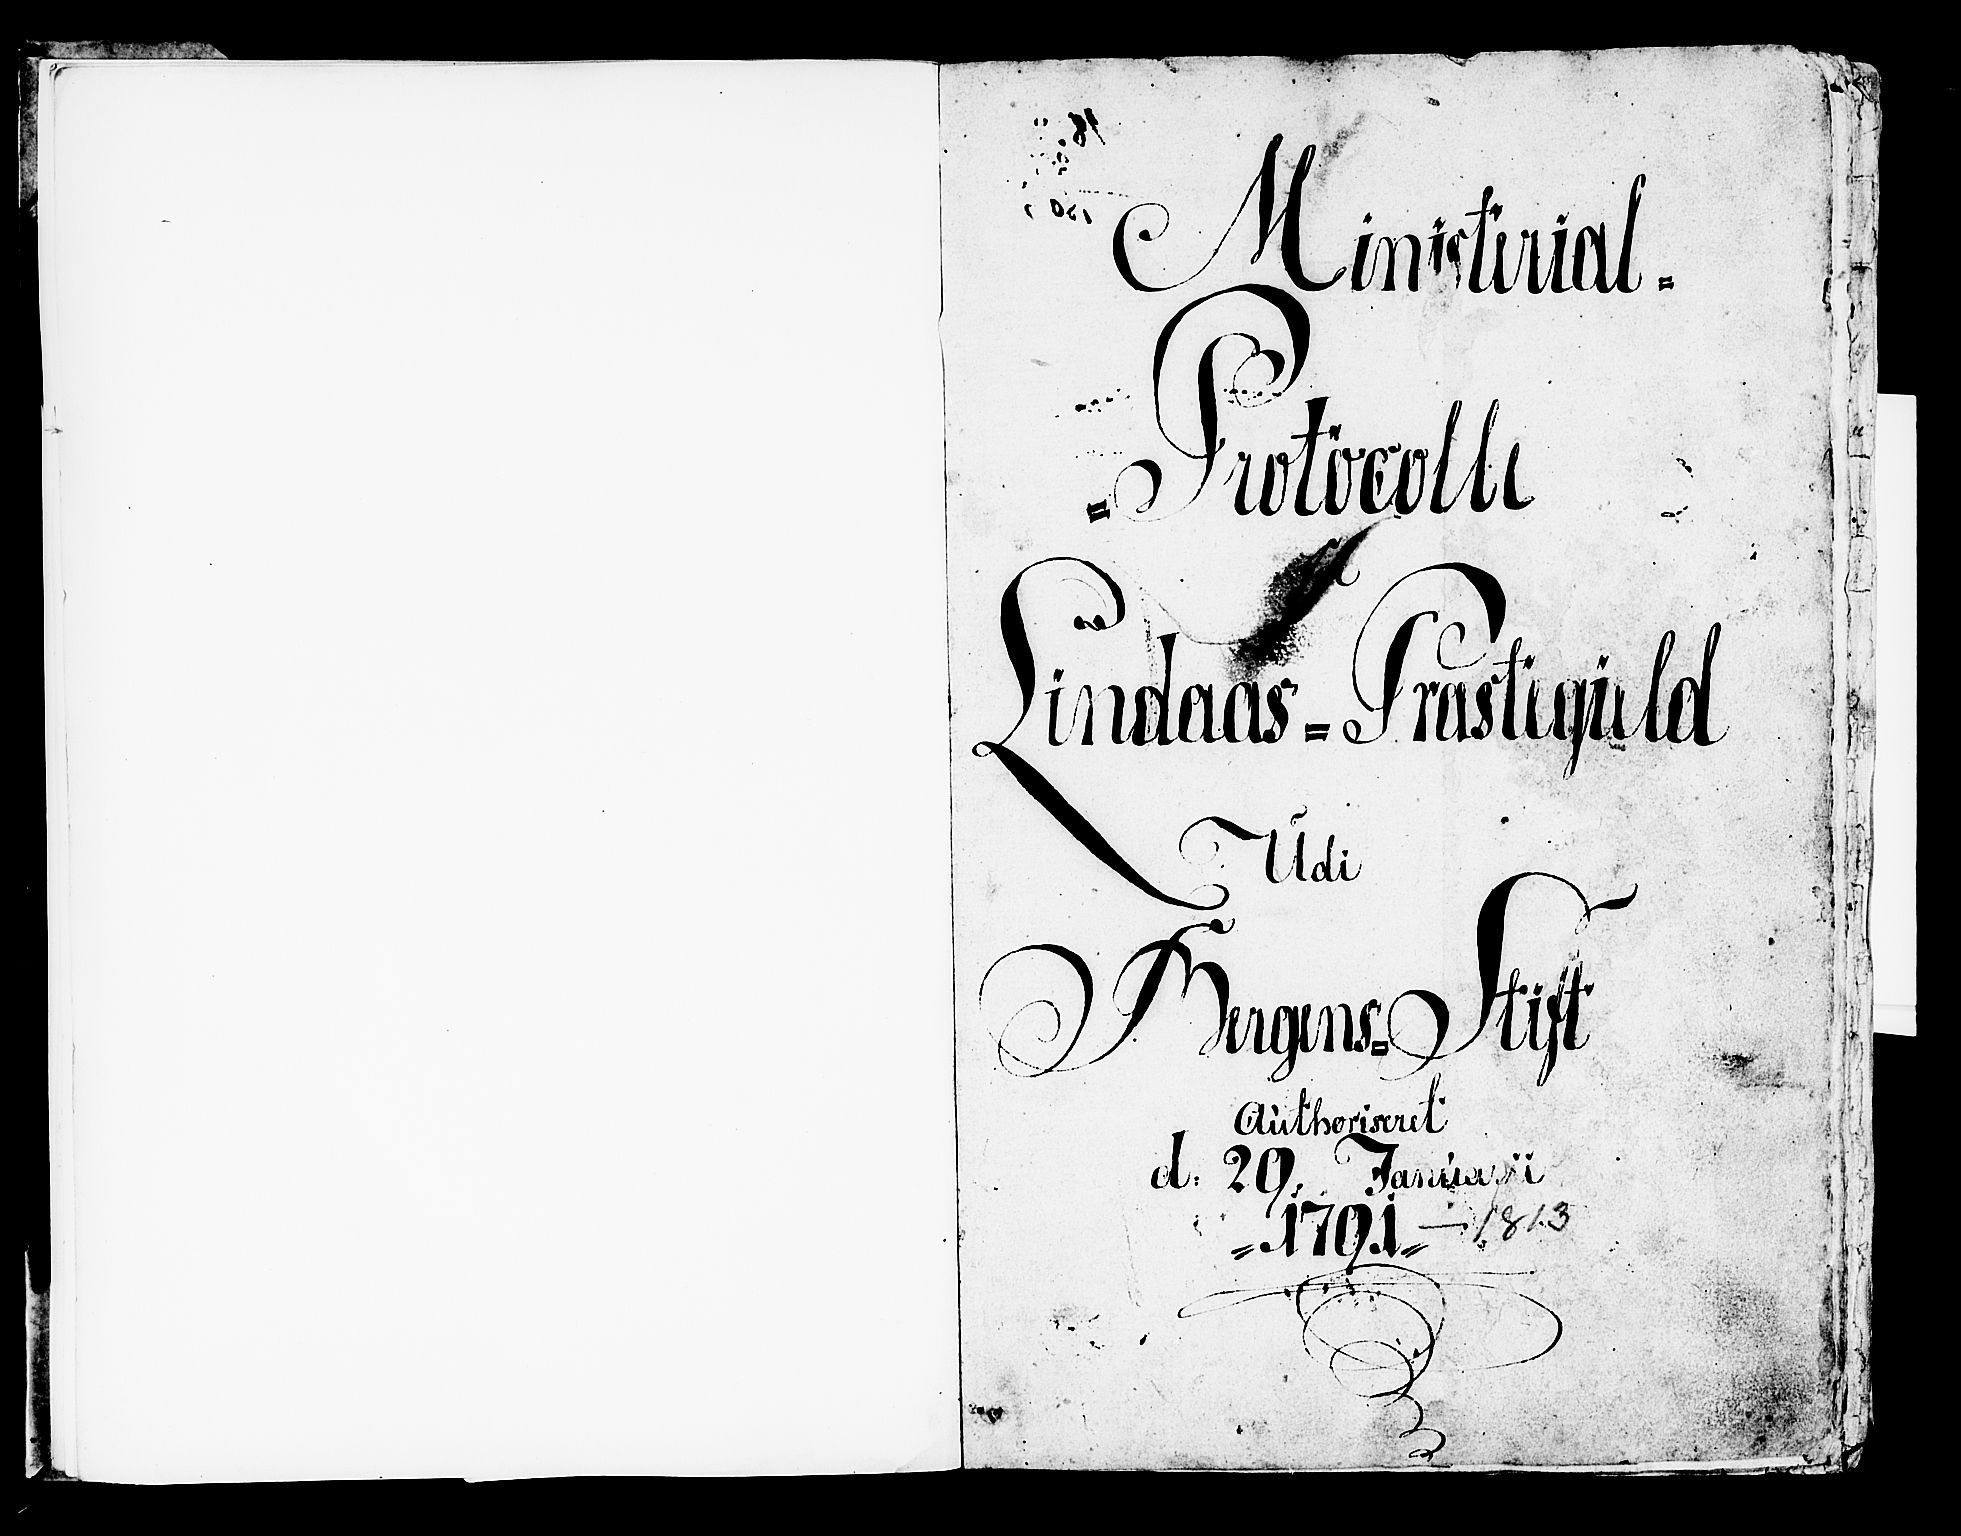 Ministerial=
=Protocolle
Lindaas=Præstegield
Udi
Bergens=Stift
Authoriseret
d: 29. Januarii
=1791= — 1813